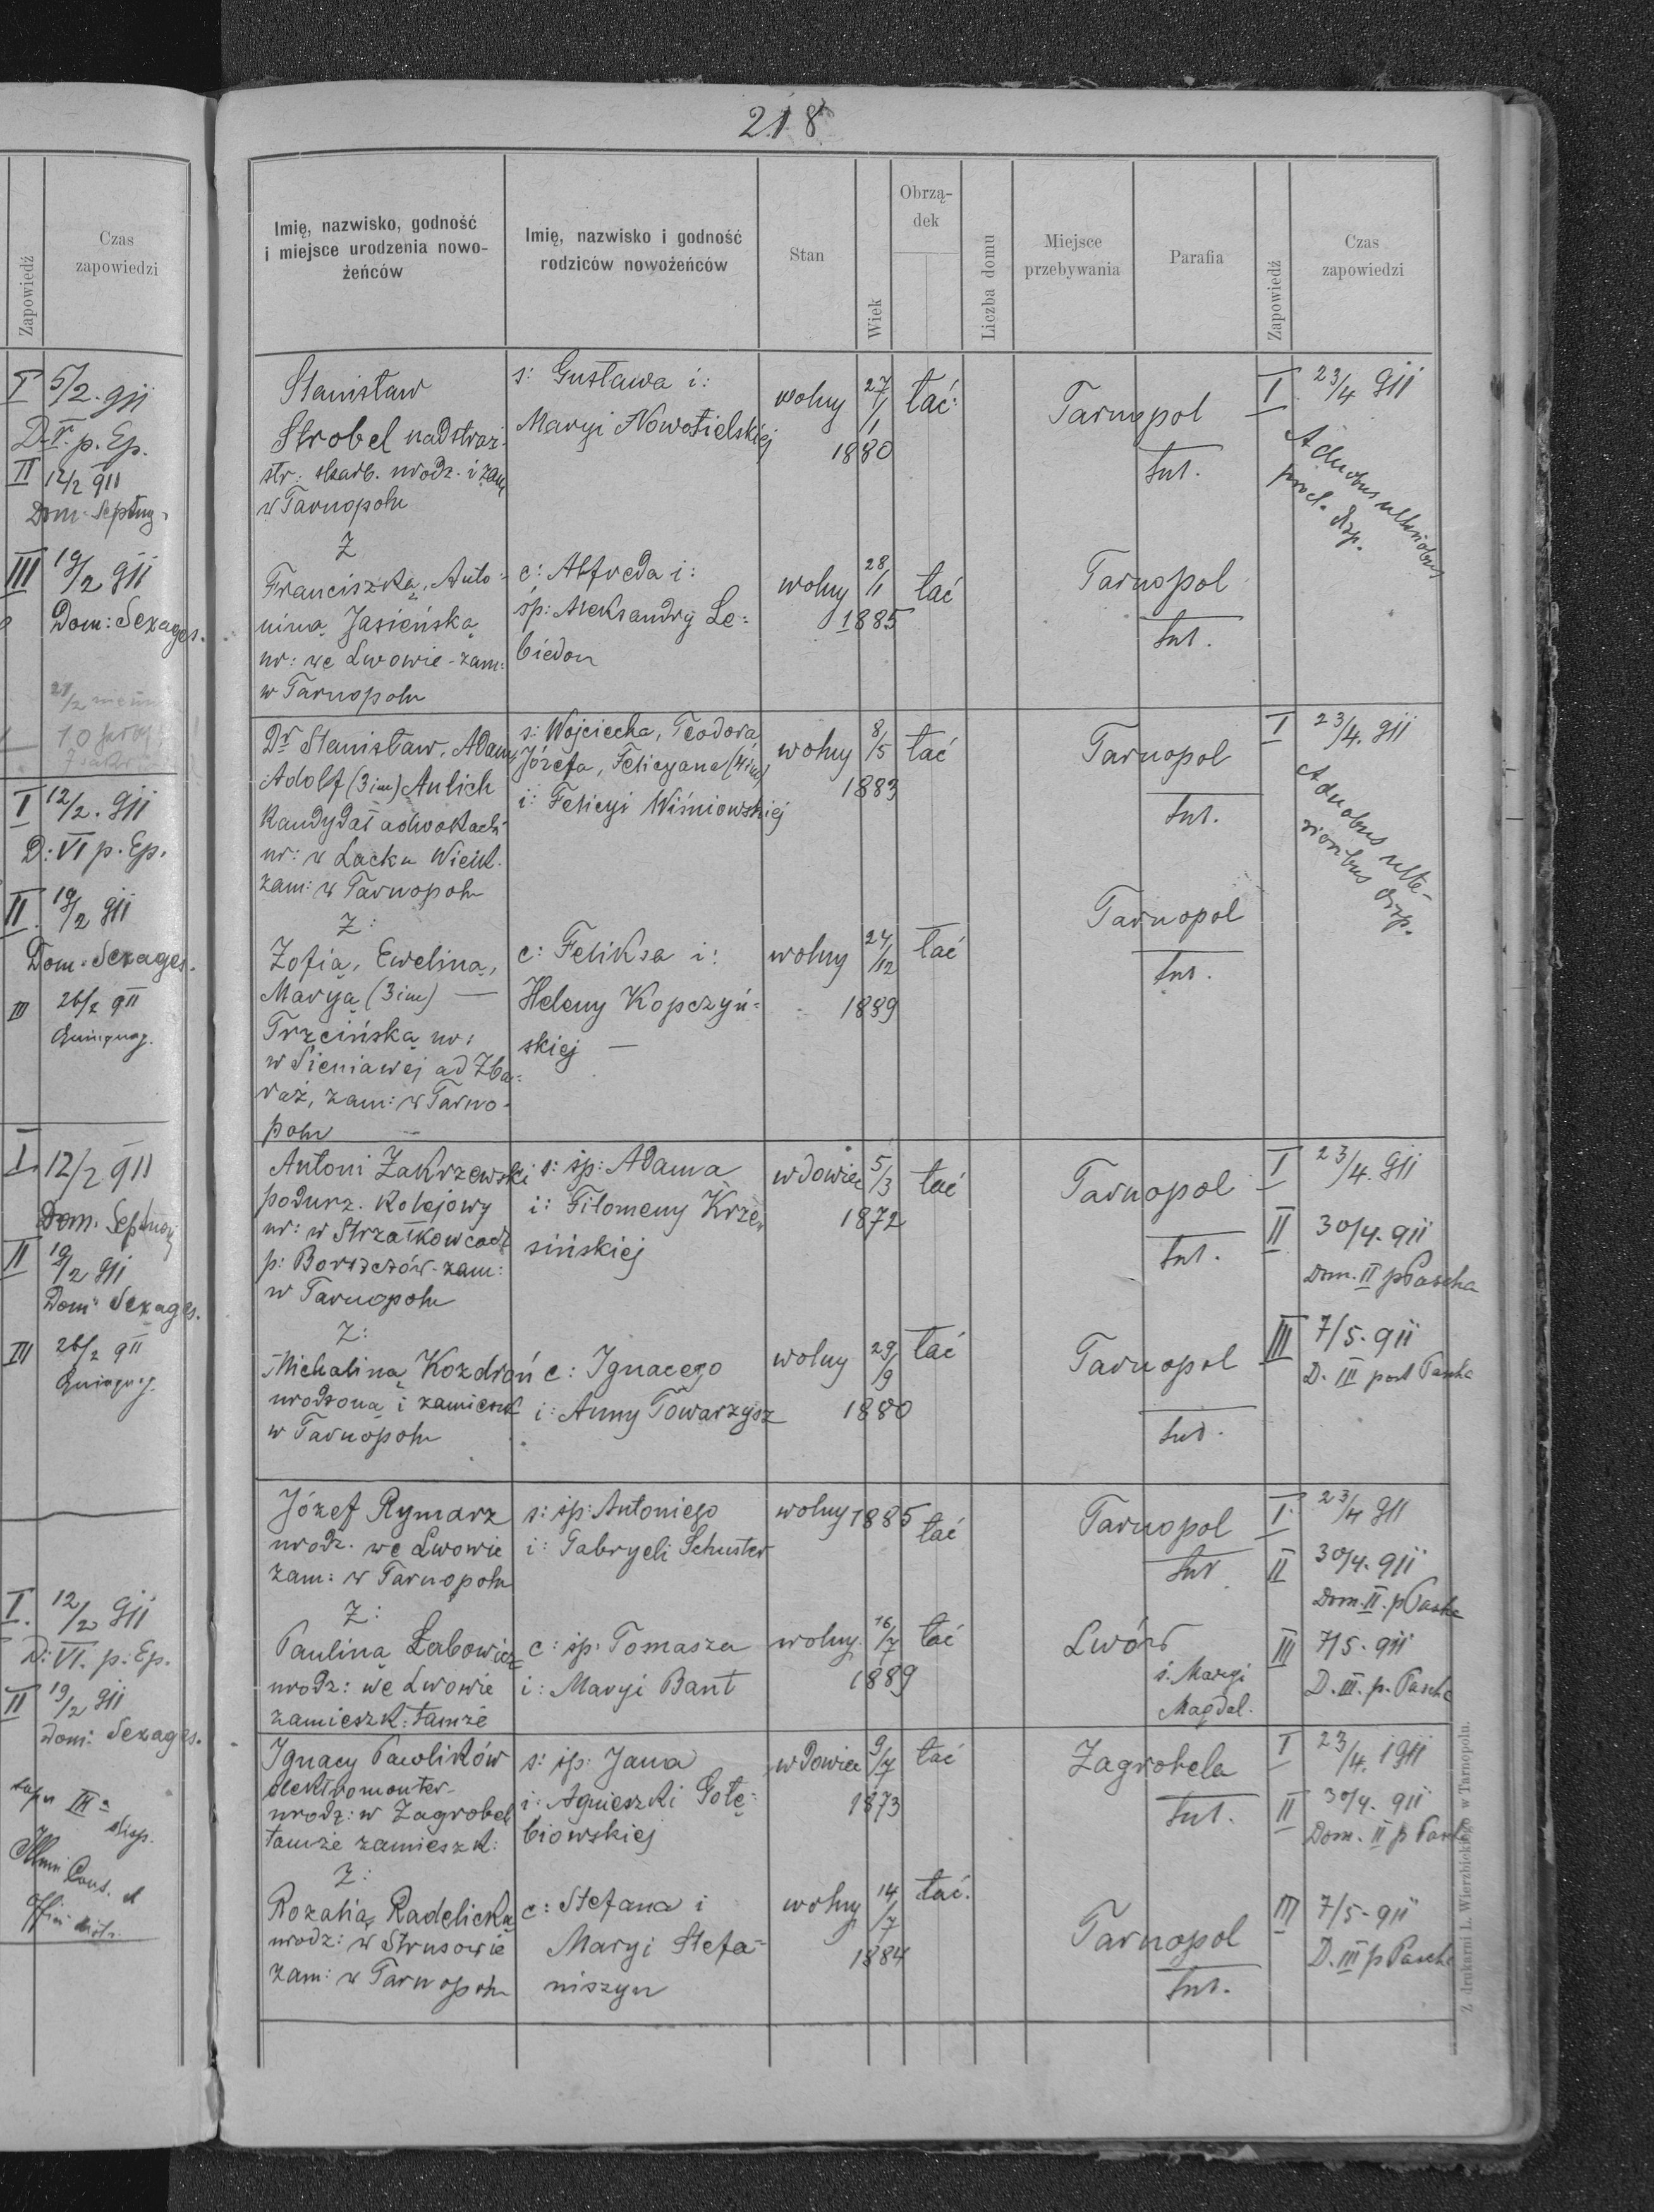 Zapowiedź
Czas
zapowiedzi
I 5/2. 911
D. V. p. Ep.
II 12/2 911
Dom: Septuag.
III 19/2 911
Dom: Sexages.
I 12/2. 911
D: VI p. Ep.
II. 19/2 911
Dom: Sexages.
III 26/2 911
Quinquag.
I. 12/2 911
Dom. Septuag
II 19/2 911
Dom: Sexages.
III 26/2 911
Quinquag.
I. 12/2 911
D: VI. p. Ep.
II 19/2 911
Dom: Sexages.
super III a
disp.
218
Imię, nazwisko, godność
i miejsce urodzenia nowo-
żeńców
Imię, nazwisko i godność
rodziców nowożeńców
Stan
Wiek
Obrzą-
dek
Liczba domu
Miejsce
przebywania
Parafia
Zapowiedź
Czas
zapowiedzi
Stanisław
Strobel nadstraż.
str: skarb. urodz. i zam
w Tarnopolu
s: Gustawa i:
Maryi Nowosielskiej
wolny
27/1
1880
łać:
Tarnopol
tut.
I 23/4 911
A duobus ulterioribus
procl. disp.
Z
Franciszką, Anto-
niną Jasieńską
ur: we Lwowie - zam:
w Tarnopolu
c: Alfreda i:
śp: Aleksandry Le=
biedon
wolny
28/1
1885
łać
Tarnopol
tut.
Dr Stanisław, Adam,
Adolf (3 im) Aulich
Kandydat adwokacki
ur: w Lacku Wielk.
zam: w Tarnopolu
s: Wojciecha, Teodora
Józefa, Felicyana (4 im)
i: Felicyi Wiśniowskiej
wolny
8/5
1883
łać
Tarnopol
tut.
I 23/4. 911
A duobus ulte-
rioribus disp.
Z:
Zofią, Eweliną,
Maryą (3 im) —
Trzcińską ur:
w Sieniawej ad Zba=
raż, zam: w Tarno-
polu
c: Feliksa i:
Heleny Kopczyń=
skiej —
wolny
24/12
1889
łać
Tarnopol
tut.
Antoni Zakrzewski
podurz. kolejowy
ur: w Strzałkowcach
p: Borszczów - zam:
w Tarnopolu
s: śp: Adama
i: Filomeny Krze
sińskiej
wdowiec
5/3
1872
łać
Tarnopol
tut.
I 23/4. 911
II 30/4. 911
Dom. II p Pascha
Z:
Michaliną Kozdroń
urodzoną i zamieszk
w Tarnopolu
c: Ignacego
i: Anny Towarzysz
wolny
29/9
1880
łać
Tarnopol
tut.
III 7/5. 911
D. III post Pascha
Józef Rymarz
urodz. we Lwowie
zam: w Tarnopolu
s: śp: Antoniego
i: Gabryeli Schuster
wolny
1885
łać
Tarnopol
tut
I. 23/4 911
II 30/4. 911
Dom. II. p Pascha
Z:
Pauliną Łabowicz
urodz: we Lwowie
zamieszk: tamże
c: śp: Tomasza
i: Maryi Bant
wolny.
16/7
1889
łać
Lwów
ś. Maryi
Magdal.
III 7/5. 911
D. III. p. Pascha
Ignacy Pawlików
elektromonter
urodz: w Zagrobeli
tamże zamieszk:
s: śp: Jana
i: Agnieszki Gołę=
biowskiej
wdowiec
9/7
1873
łać
Zagrobela
tut.
I 23/4. 1911
II 30/4. 911
Dom. II p Pasch
Z:
Rozalią Radelicką
urodz: w Strusowie
zam: w Tarnopolu
c: Stefana i
Maryi Stefa=
niszyn
wolny
14/7
1884
łać.
Tarnopol
tut.
III 7/5. 911
D. III p Pascha
Z drukarni L. Wierzbickiego w Tarnopolu.